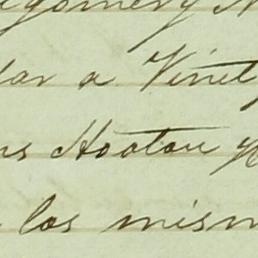 lgomery
dar a Vinel
ns Hooton y
los mism